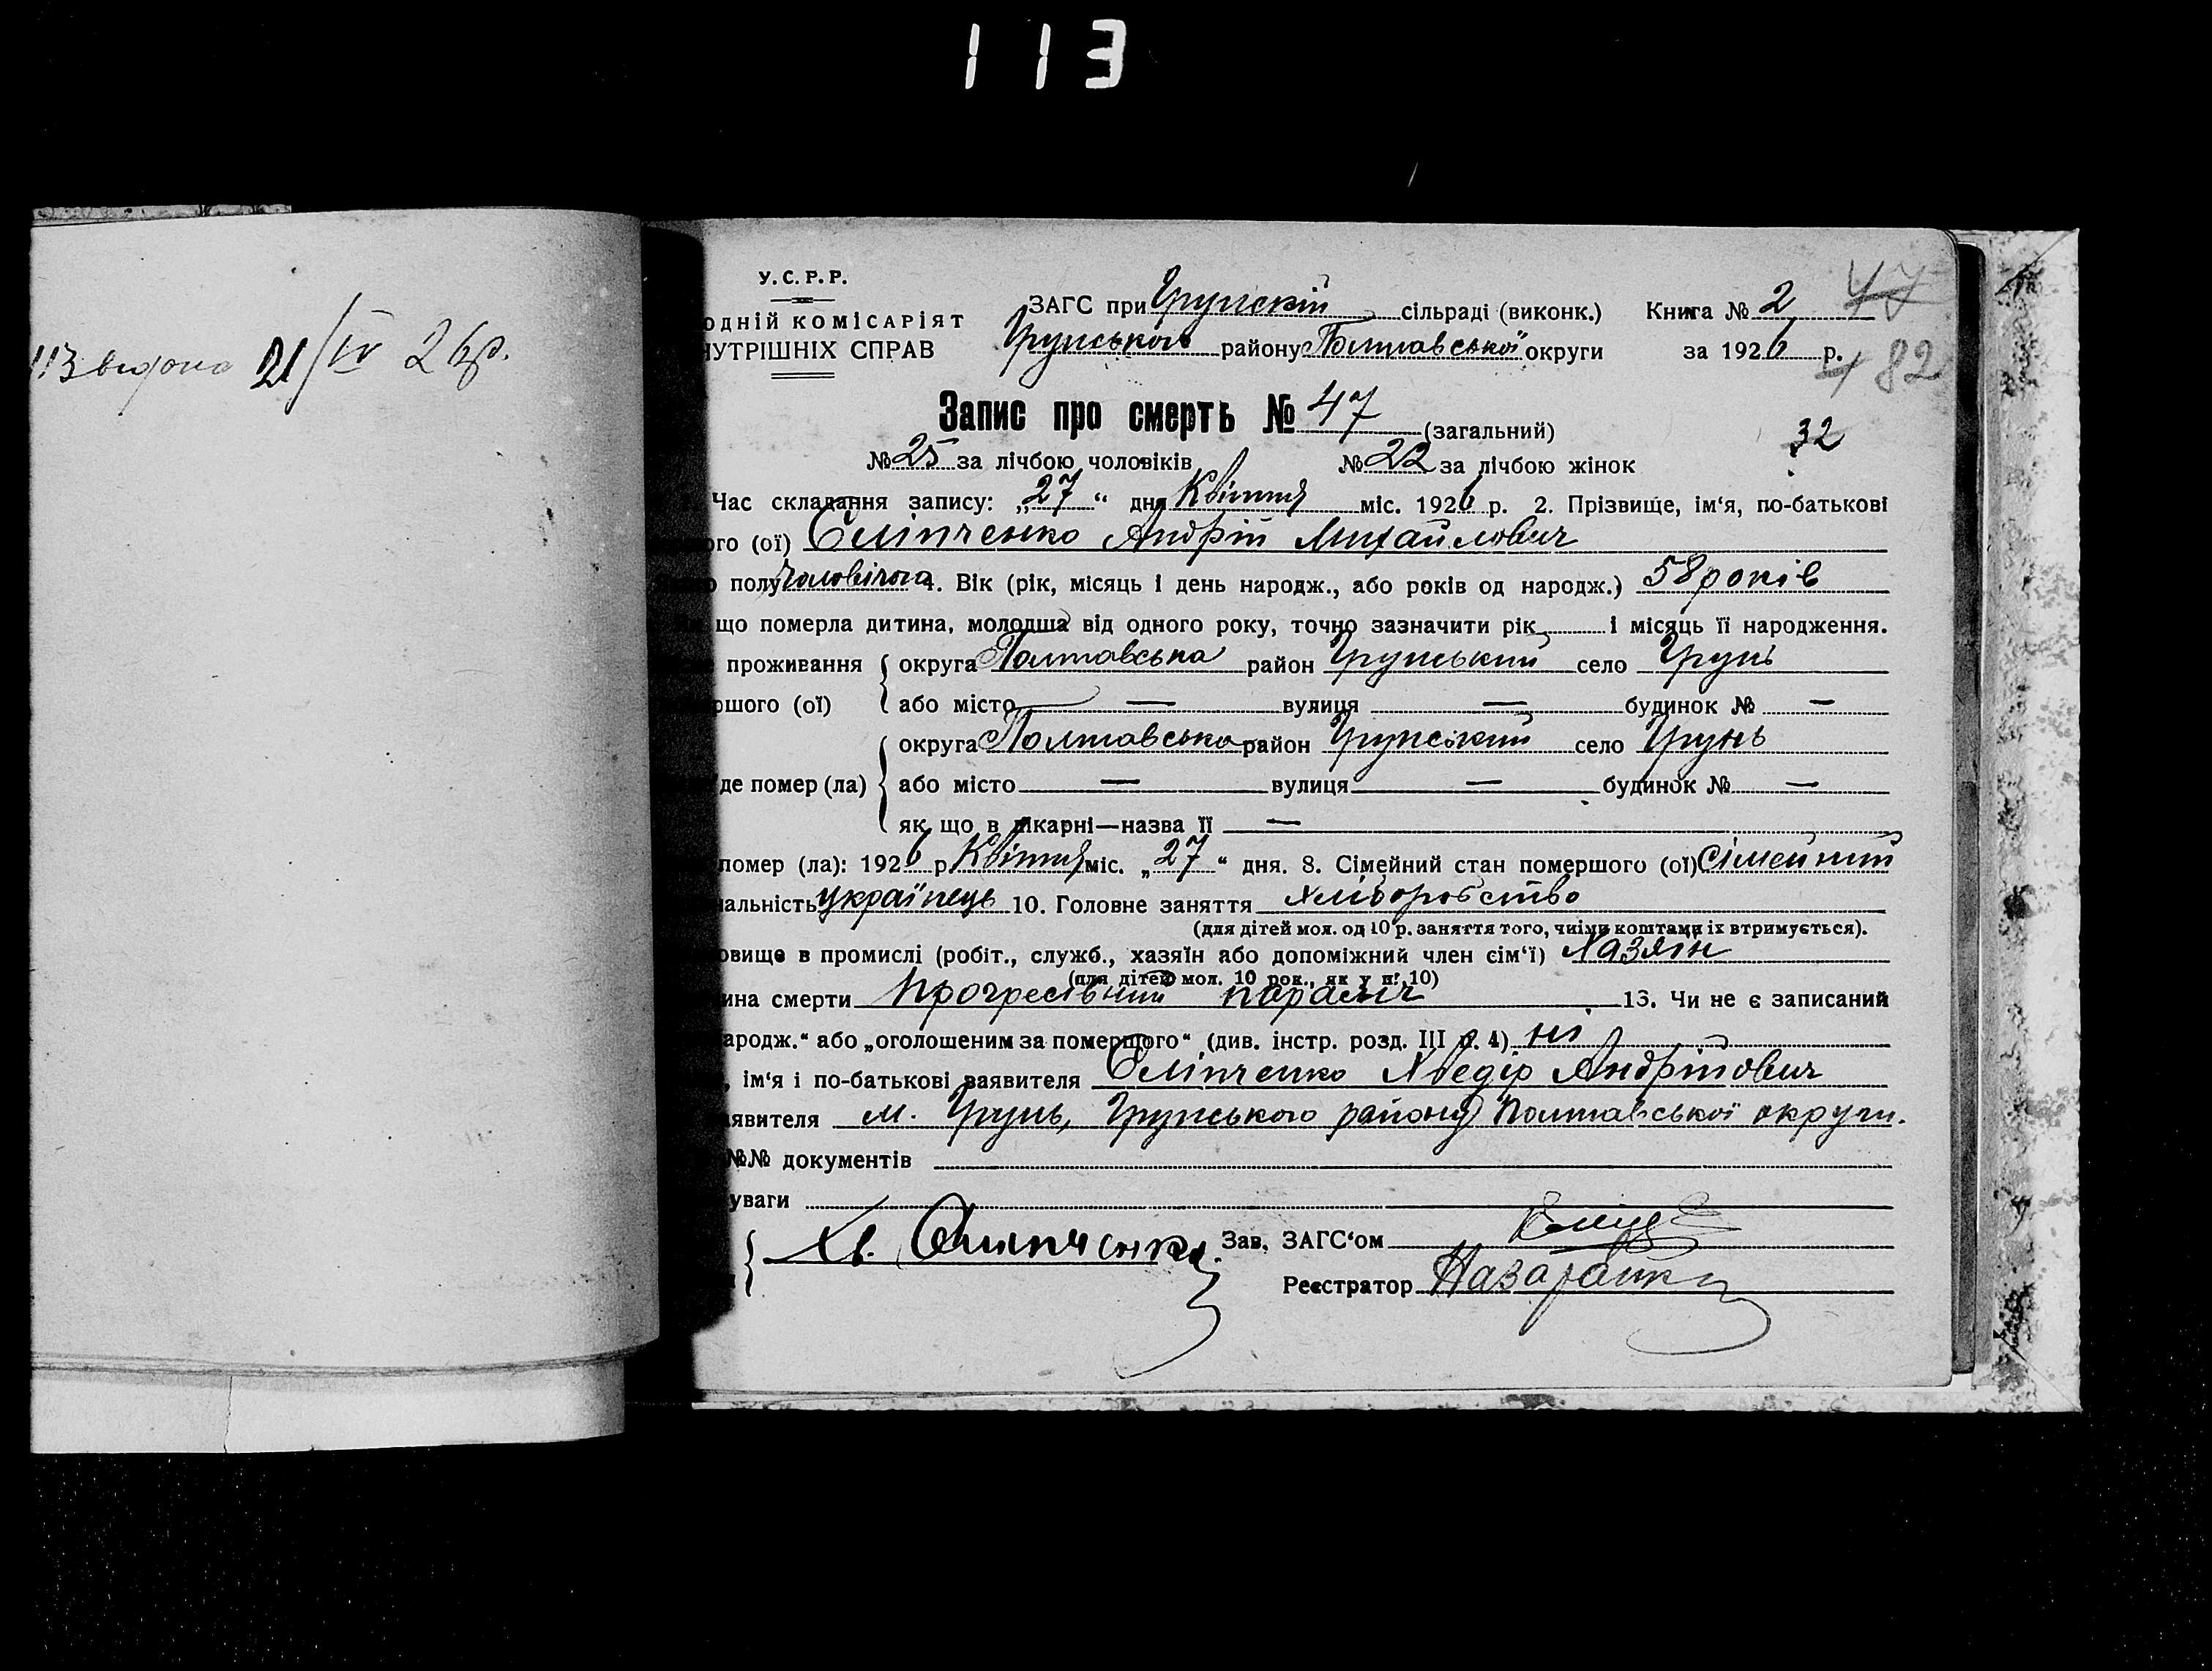 113
113 видана 21/IV 26р.
У.С.Р.Р.
ОДНІЙ КОМІСАРІЯТ
НУТРІШНІХ СПРАВ
ЗАГС при Грунській сільраді (виконк.) Книга № 2 47
Грунського району Полтавської округи за 1926 р. 82
Запис про смерть № 47 (загальний)
32
№ 25 за лічбою чоловіків № 22 за лічбою жінок
Час складання запису: „27“ дня Квітня міс. 1926 р. 2. Прізвище, ім‘я, по-батькові
ого (ої) Оліпченко Андрій Михайлович
полу чоловічого 4. Вік (рік, місяць і день народж., або років од народж.) 58 років
що померла дитина, молодша від одного року, точно зазначити рік і місяць її народження.
проживання округа Полтавська район Грунський село Грунь
ршого (ої) або місто — вулиця — будинок № —
округа Полтавська район Грунський село Грунь
де помер (ла) або місто — вулиця — будинок № —
як що в лікарні—назва її —
помер (ла): 1926 р. Квітня міс. „27“ дня. 8. Сімейний стан помершого (ої) сімейний
нальність українець 10. Головне заняття хліборобство
(для дітей мол. од 10 р. заняття того, чиїми коштами їх втримується).
овище в промислі (робіт., служб., хазяїн або допоміжний член сім‘ї) Хазяїн
(для дітей мол. 10 рок., як у п. 10)
ина смерти Прогресівний параліч 13. Чи не є записаний
ародж.“ або „оголошеним за помершого“ (див. інстр. розд. III п. 4) ні
, ім‘я і по-батькові заявителя Оліпченко Хведір Андрійович
аявителя м. Грунь, Грунського району Полтавської округи.
№№ документів
уваги
Хв. Олипченко. Зав. ЗАГС‘ом
Реєстратор